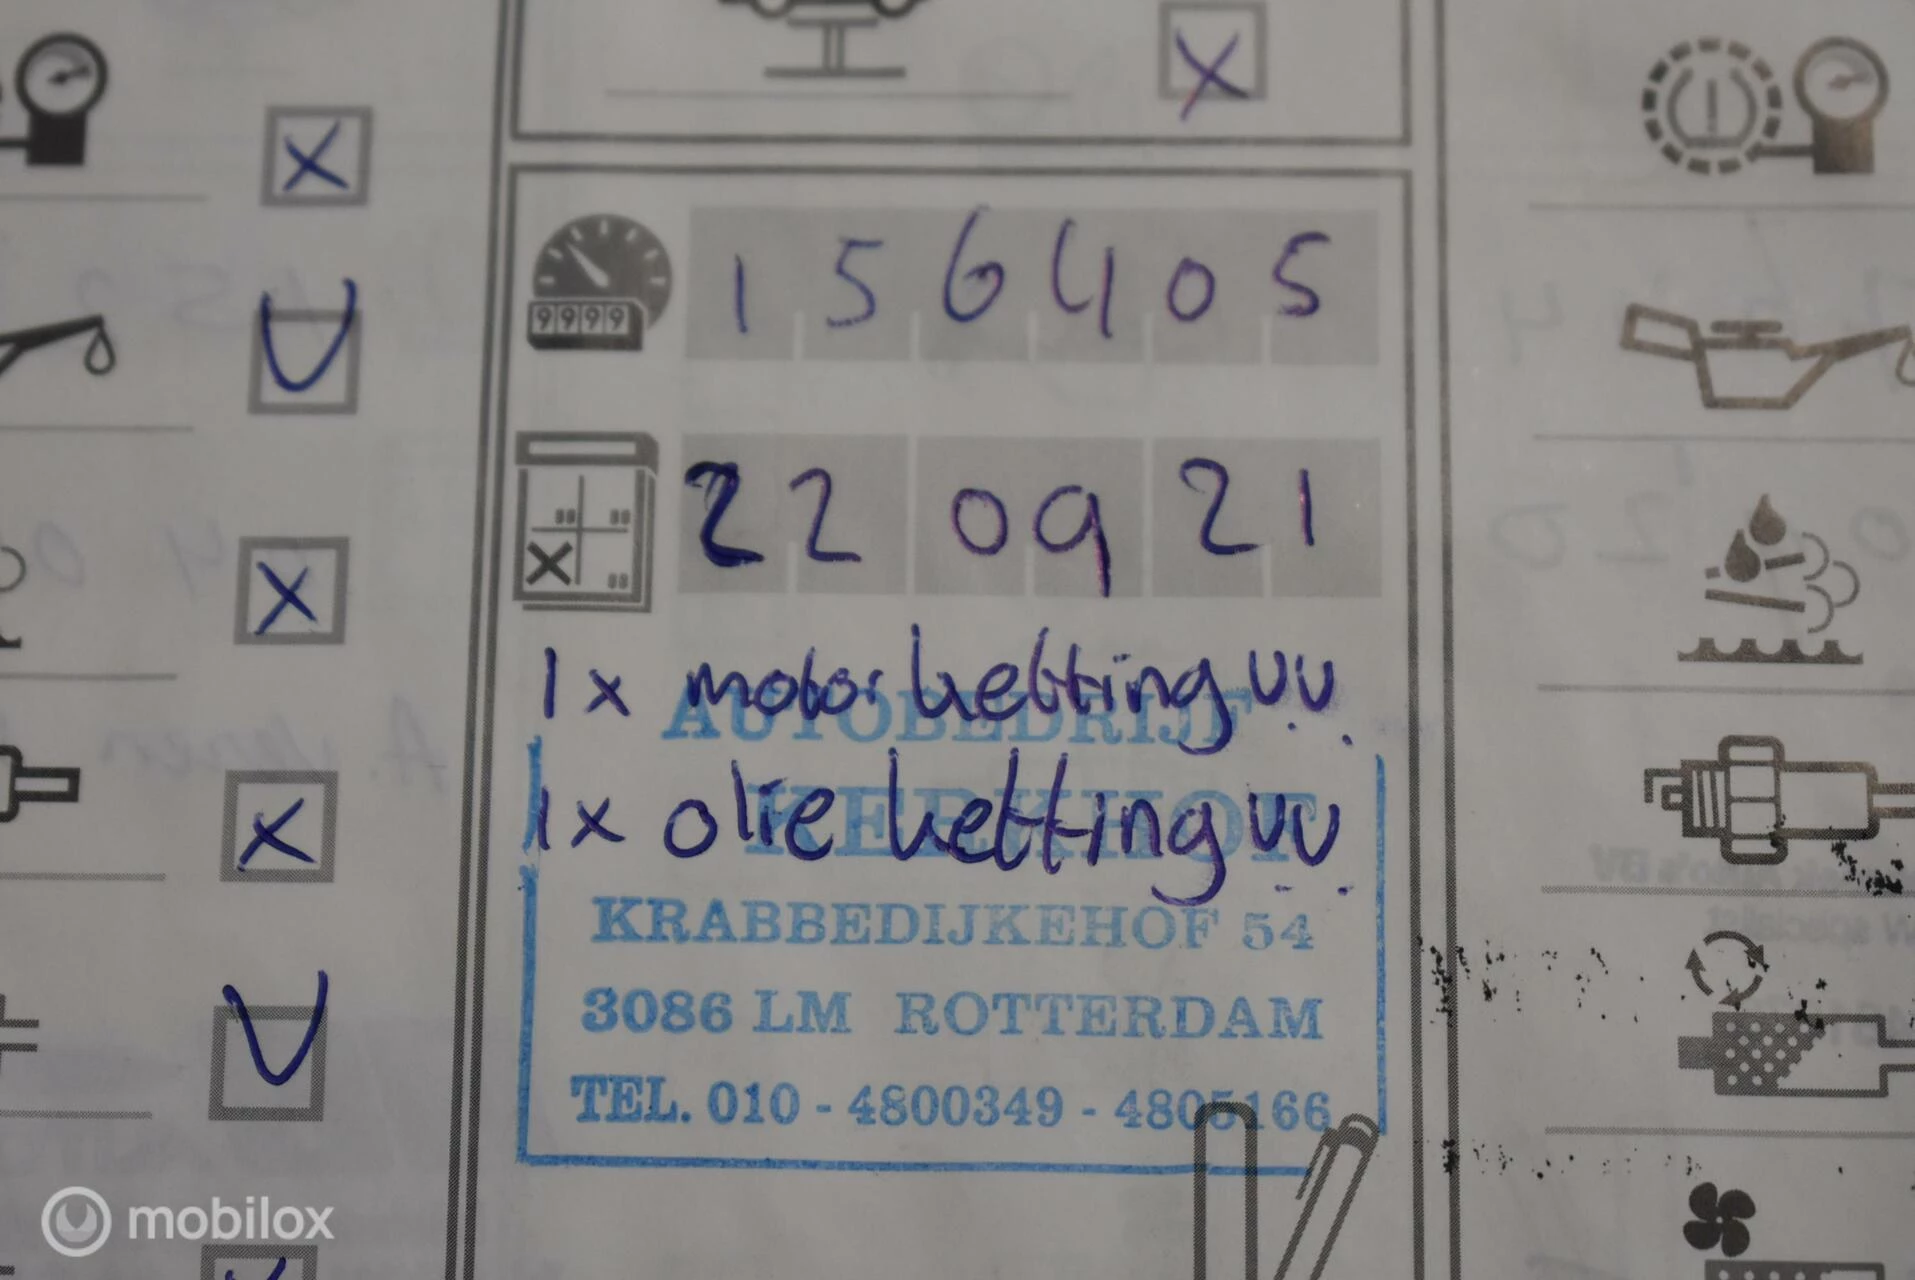 156405
9999
22 09 21
1x motorketting vv.
AUTOBEDRIJF
1x olie ketting vv.
KERKHOF
KRABBEDIJKEHOF 54
3086 LM ROTTERDAM
TEL. 010 - 4800349 - 4805166
mobilox